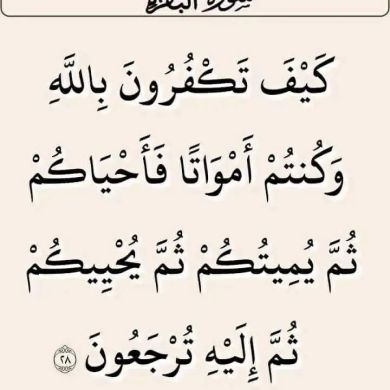 سورة البقرة
كَيْفَ تَكْفُرُونَ بِاللَّهِ
وَكُنتُمْ أَمْوَاتًا فَأَحْيَاكُمْ
ثُمَّ يُمِيتُكُمْ ثُمَّ يُحْيِيكُمْ
ثُمَّ إِلَيْهِ تُرْجَعُونَ ٢٨